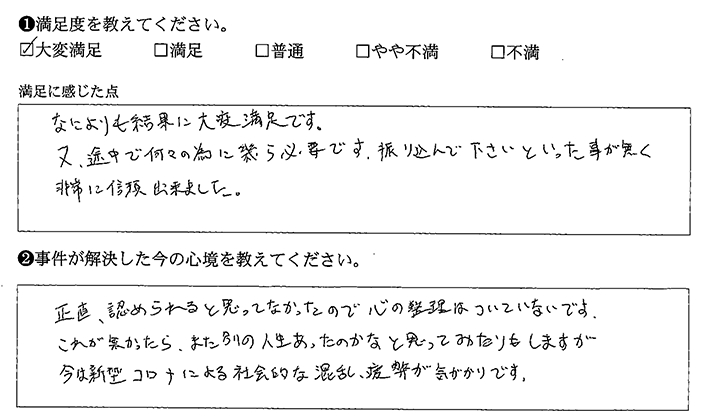 ❶満足度を教えてください。
☑大変満足 □満足 □普通 □やや不満 □不満
満足に感じた点
なによりも結果に大変満足です。
又、途中で何々の為に幾ら必要です、振り込んで下さいといった事が無く
非常に信頼出来ました。
❷事件が解決した今の心境を教えてください。
正直、認められると思ってなかったので心の整理はついていないです。
これが無かったら、また別の人生あったのかなと思ってみたりもしますが
今は新型コロナによる社会的な混乱、疲弊が気がかりです。